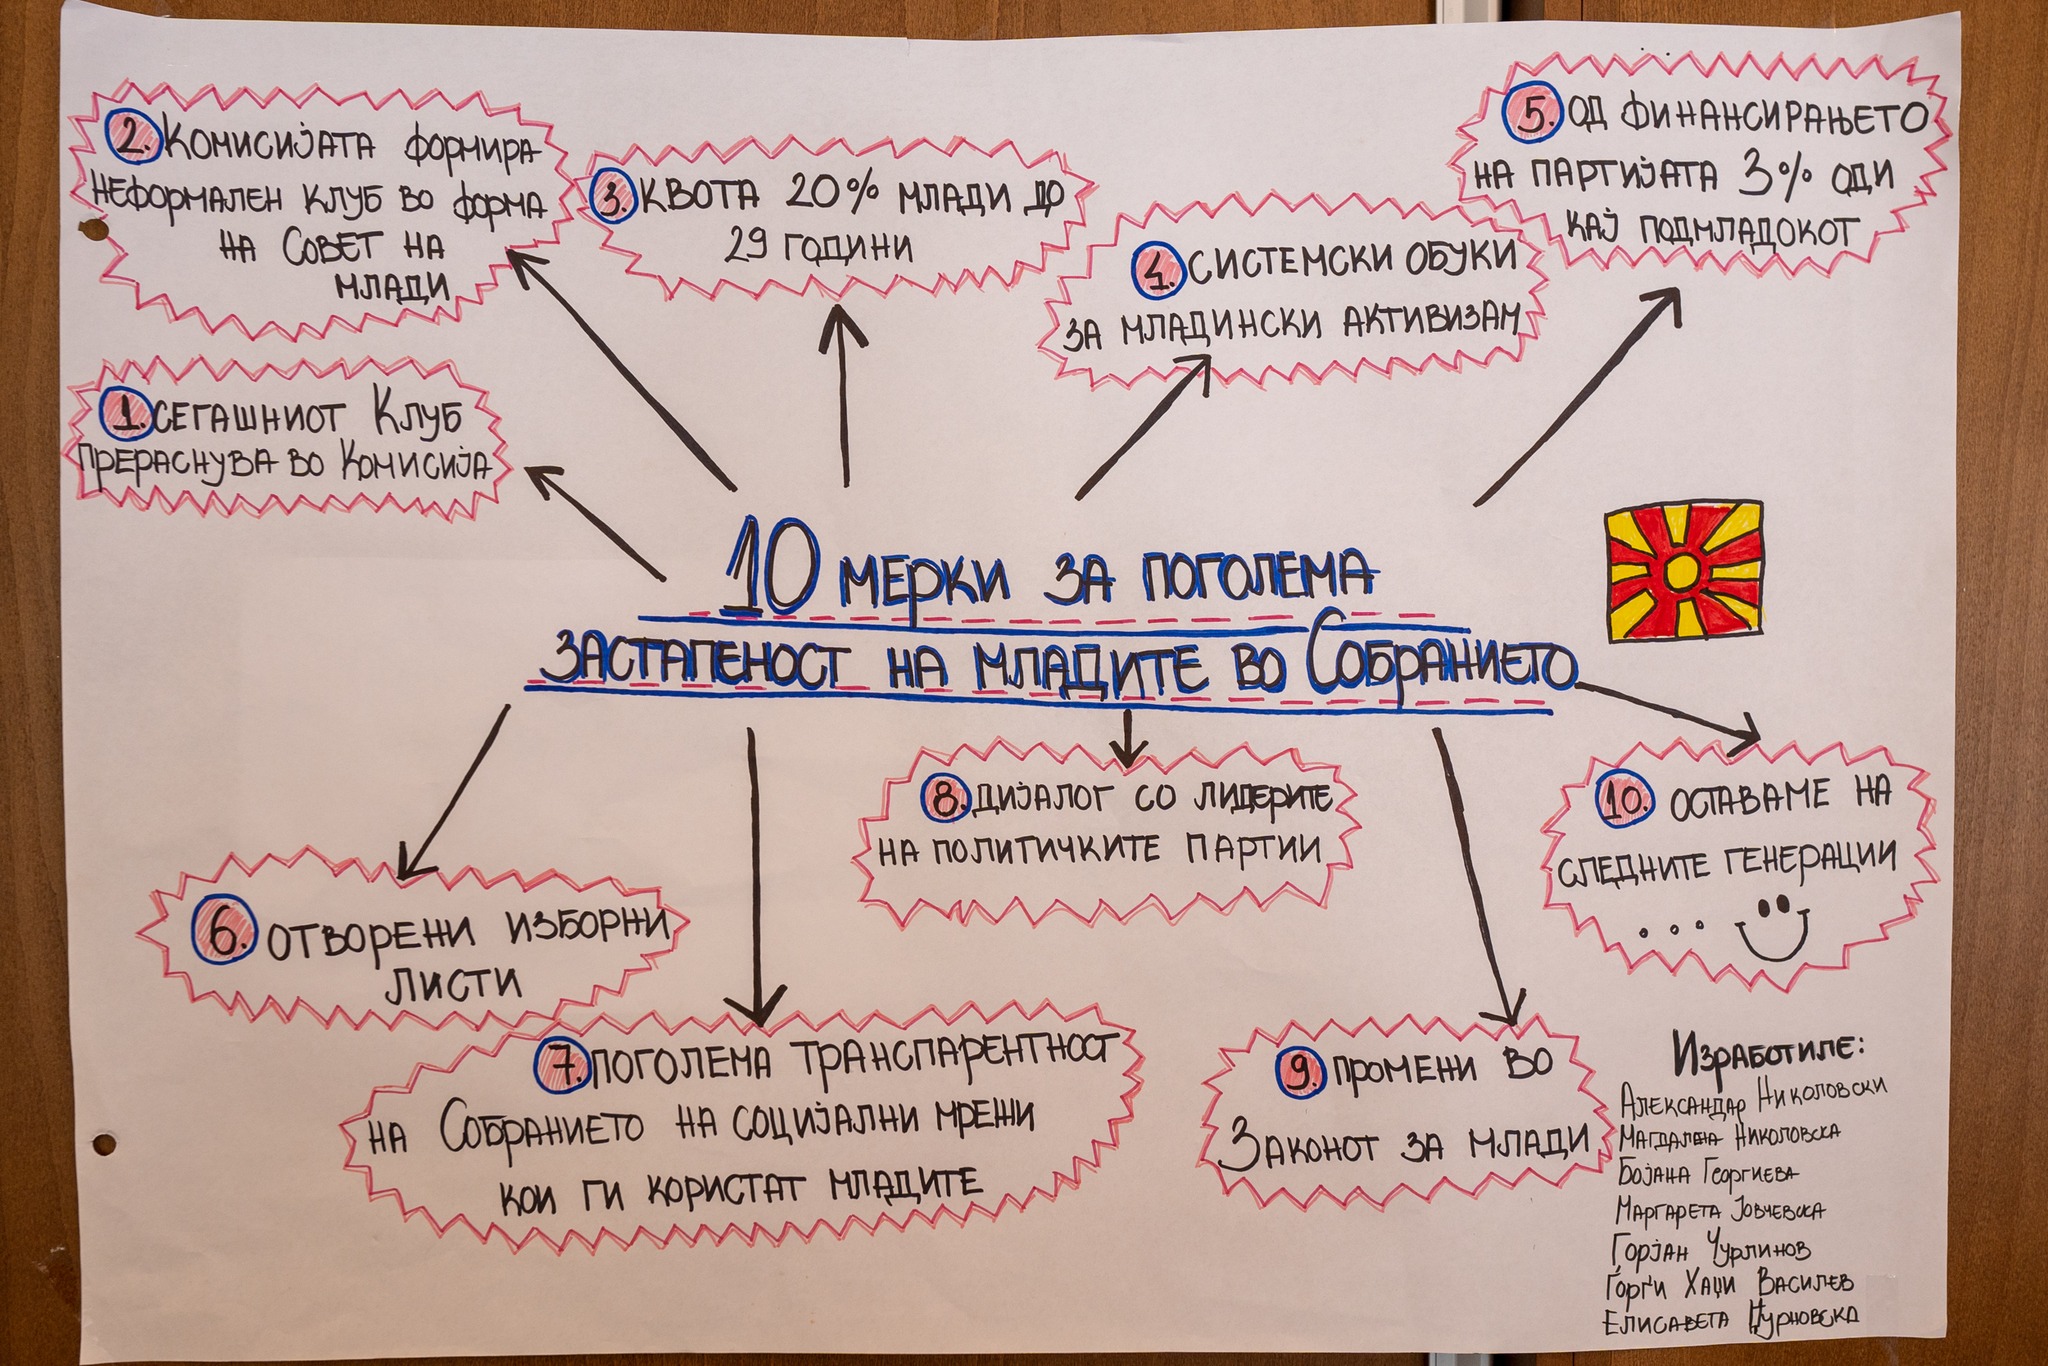 2. Комисијата формира
неформален клуб во форма
на Совет на
млади
3. Квота 20% млади до
29 години
4. Системски обуки
за младински активизам
5. Од финансирањето
на партијата 3% оди
кај подмладокот
1. Сегашниот Клуб
прераснува во Комисија
10 мерки за поголема
застапеност на младите во Собранието
6. Отворени изборни
листи
7. Поголема транспарентност
на Собранието на социјални мрежи
кои ги користат младите
8. Дијалог со лидерите
на политичките партии
9. Промени во
Законот за млади
10. Оставаме на
следните генерации
...
Изработиле:
Александар Николовски
Магдалена Николовска
Бојана Георгиева
Маргарета Јовчевска
Горјан Чурлинов
Ѓорѓи Хаџи Василев
Елисавета